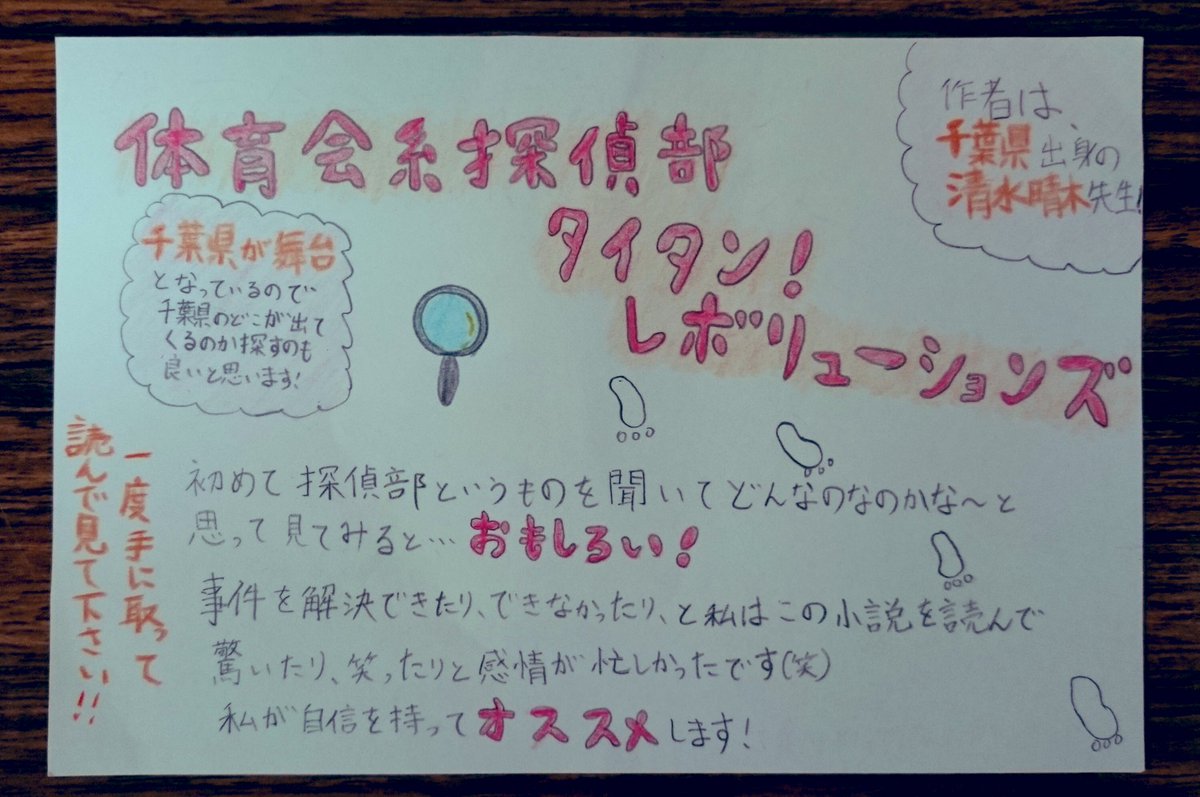 体育会系探偵部
タイタン!
レボリューションズ
作者は、
千葉県出身の
清水晴木先生!
千葉県が舞台
となっているので
千葉県のどこが出て
くるのか探すのも
良いと思います!
初めて探偵部というものを聞いてどんなのなのかな〜と
思って見てみると…おもしろい!
事件を解決できたり、できなかったり、と私はこの小説を読んで
驚いたり、笑ったりと感情が忙しかったです(笑)
私が自信を持ってオススメします!
一度手に取って
読んで見て下さい!!